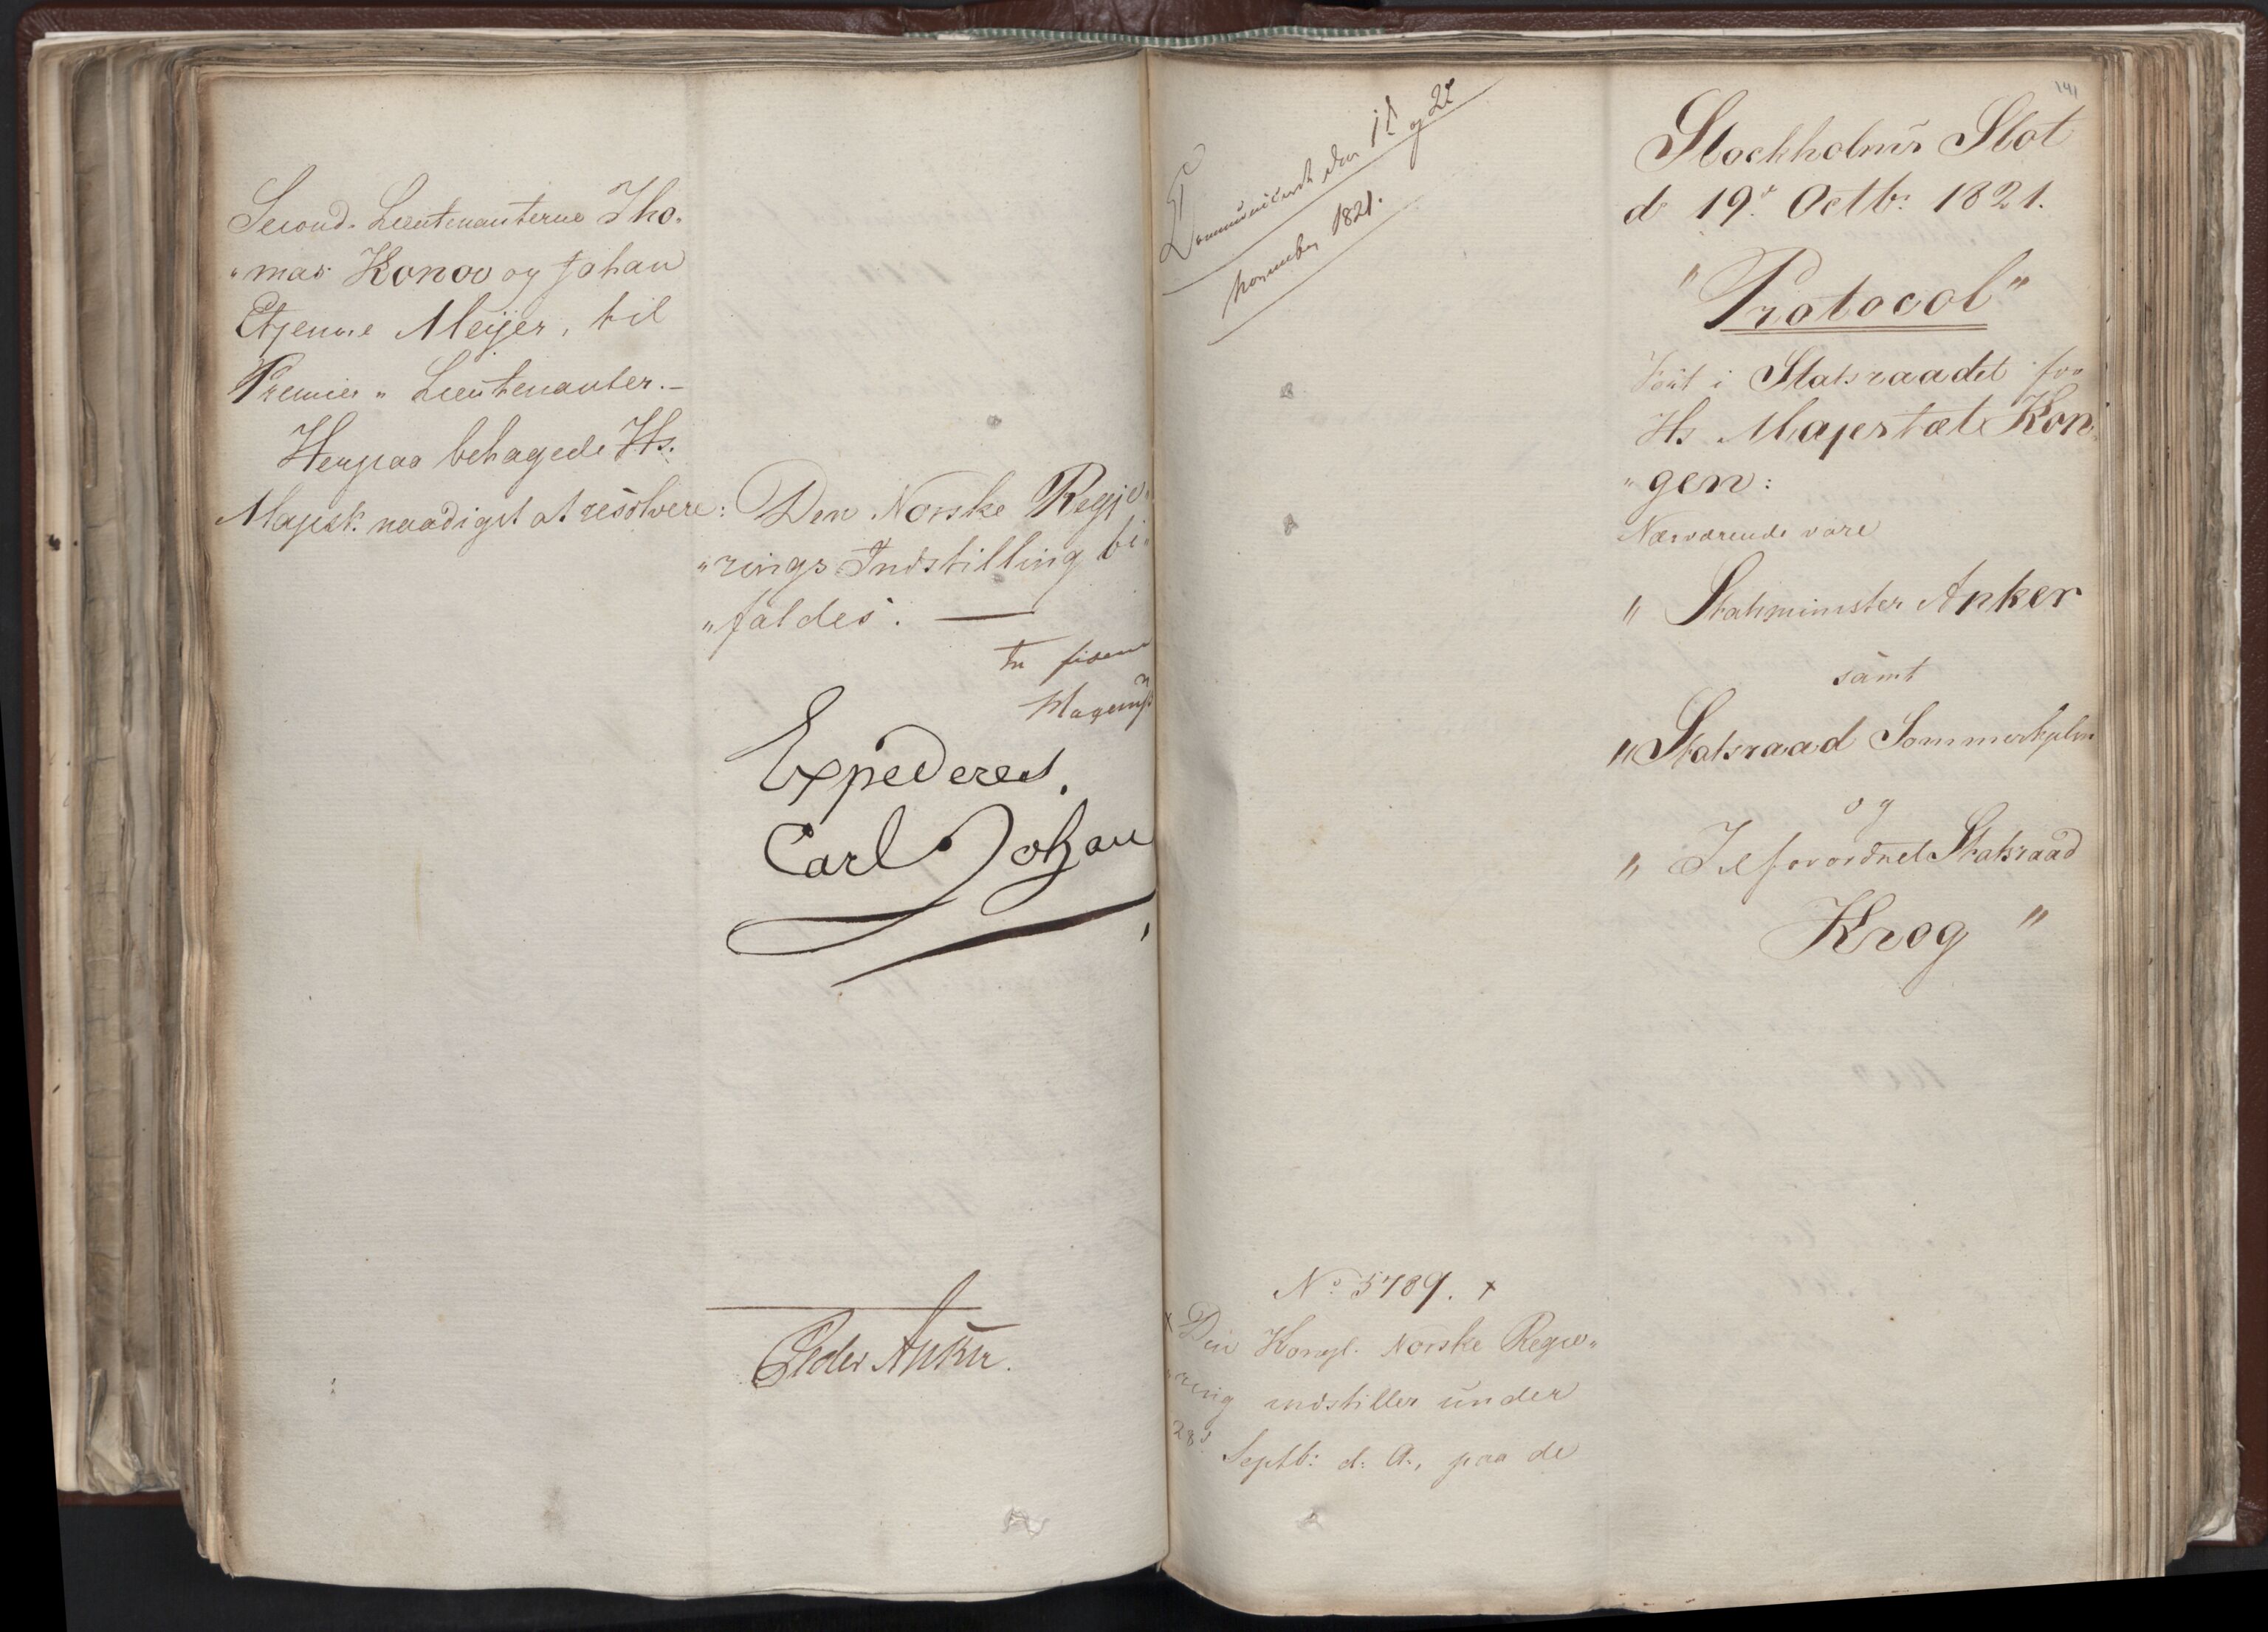 Second-Lieutenanterne Tho-
"mas Konow og Johan
Etjenne Meijer, til
Premier-Lieutenanter.-
Herpaa behagede Hs.
Majest. naadigst at resolvere:
Den Norske Regje-
"rings Indstilling bi-
"faldes. —
Expederes.
Carl Johan
Peder Anker.
Communiceret den 12 og 22
november 1821.
No. 5789. +
+ Den Kongl. Norske Regie-
"ring indstiller under
28d Septb: d: A., paa de
141
Stockholms Slot
d. 19d. Octb: 1821.
"Protocol"
Ført i Statsraadet for
Hs. Majestæt Kon-
"gen:
Nærværende vare
" Statsminister Anker
samt
" Statsraad Sommerhjelm
og
" Tilforordnet Statsraad
Krog "